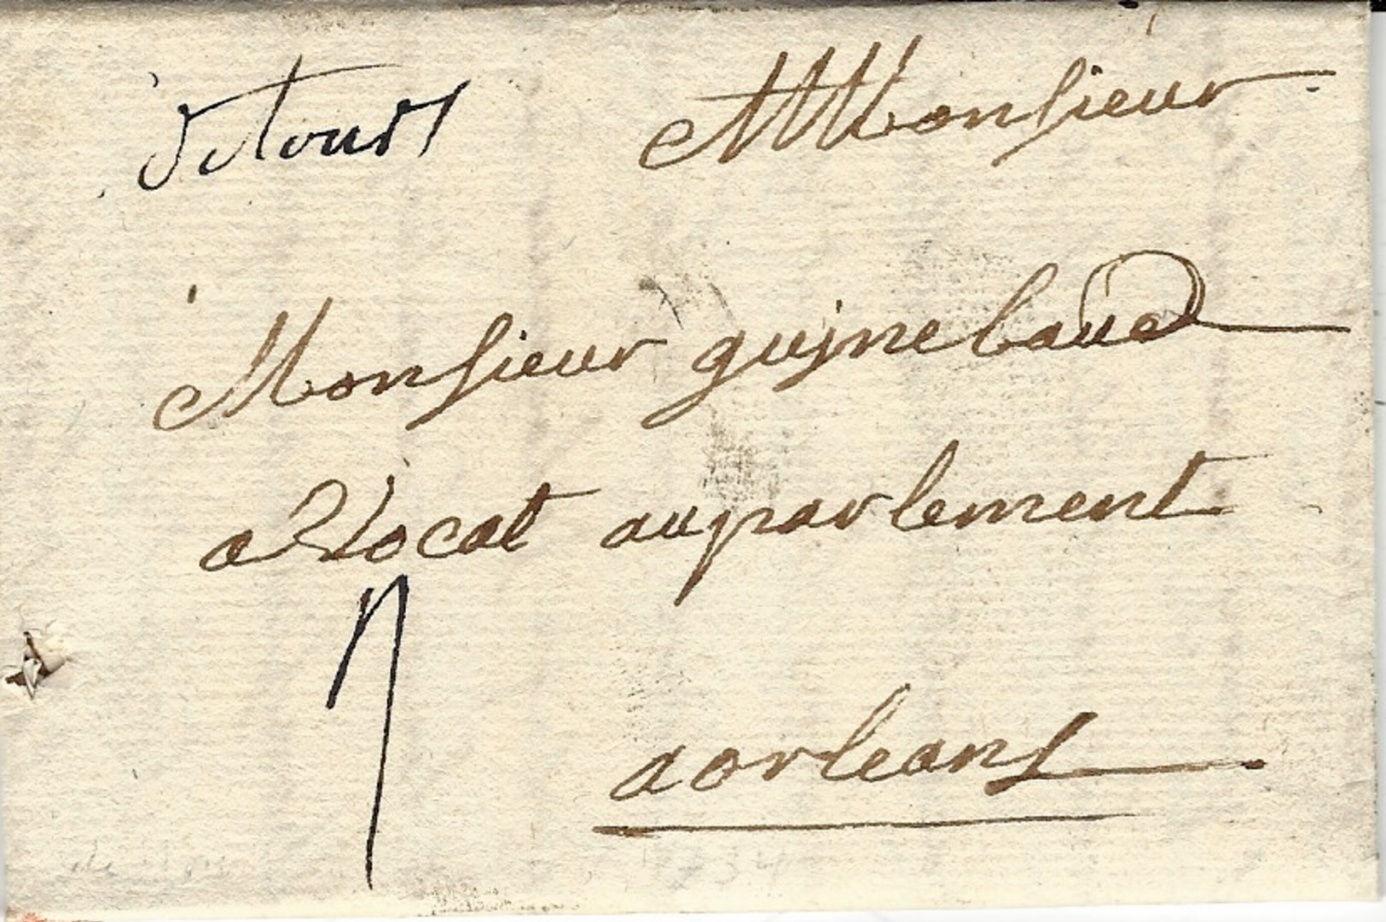 detours
A Monsieur
Monsieur guinebaud
avocat auparlement
7
aorleans